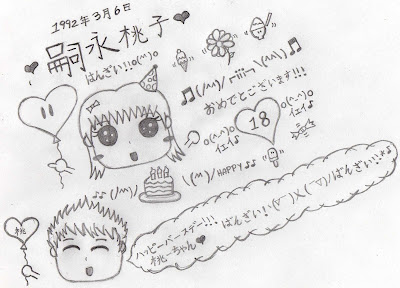 1992年3月6日
♥嗣永桃子♥
ばんざい!!o(^^)o
♫(/^^)/┌iii┐\(^^\)♫
おめでとございます!!!
o(^-^)o
イエイ♪
18
o(^-^)o
イエイ♪
♪♪(/^^)/
\(^^)/HAPPY♪♪
ハッピーバースデー!!!ばんざい!\(▽￣)乂(￣▽)/ばんざい!!*♪
桃ーちゃん♥
桃